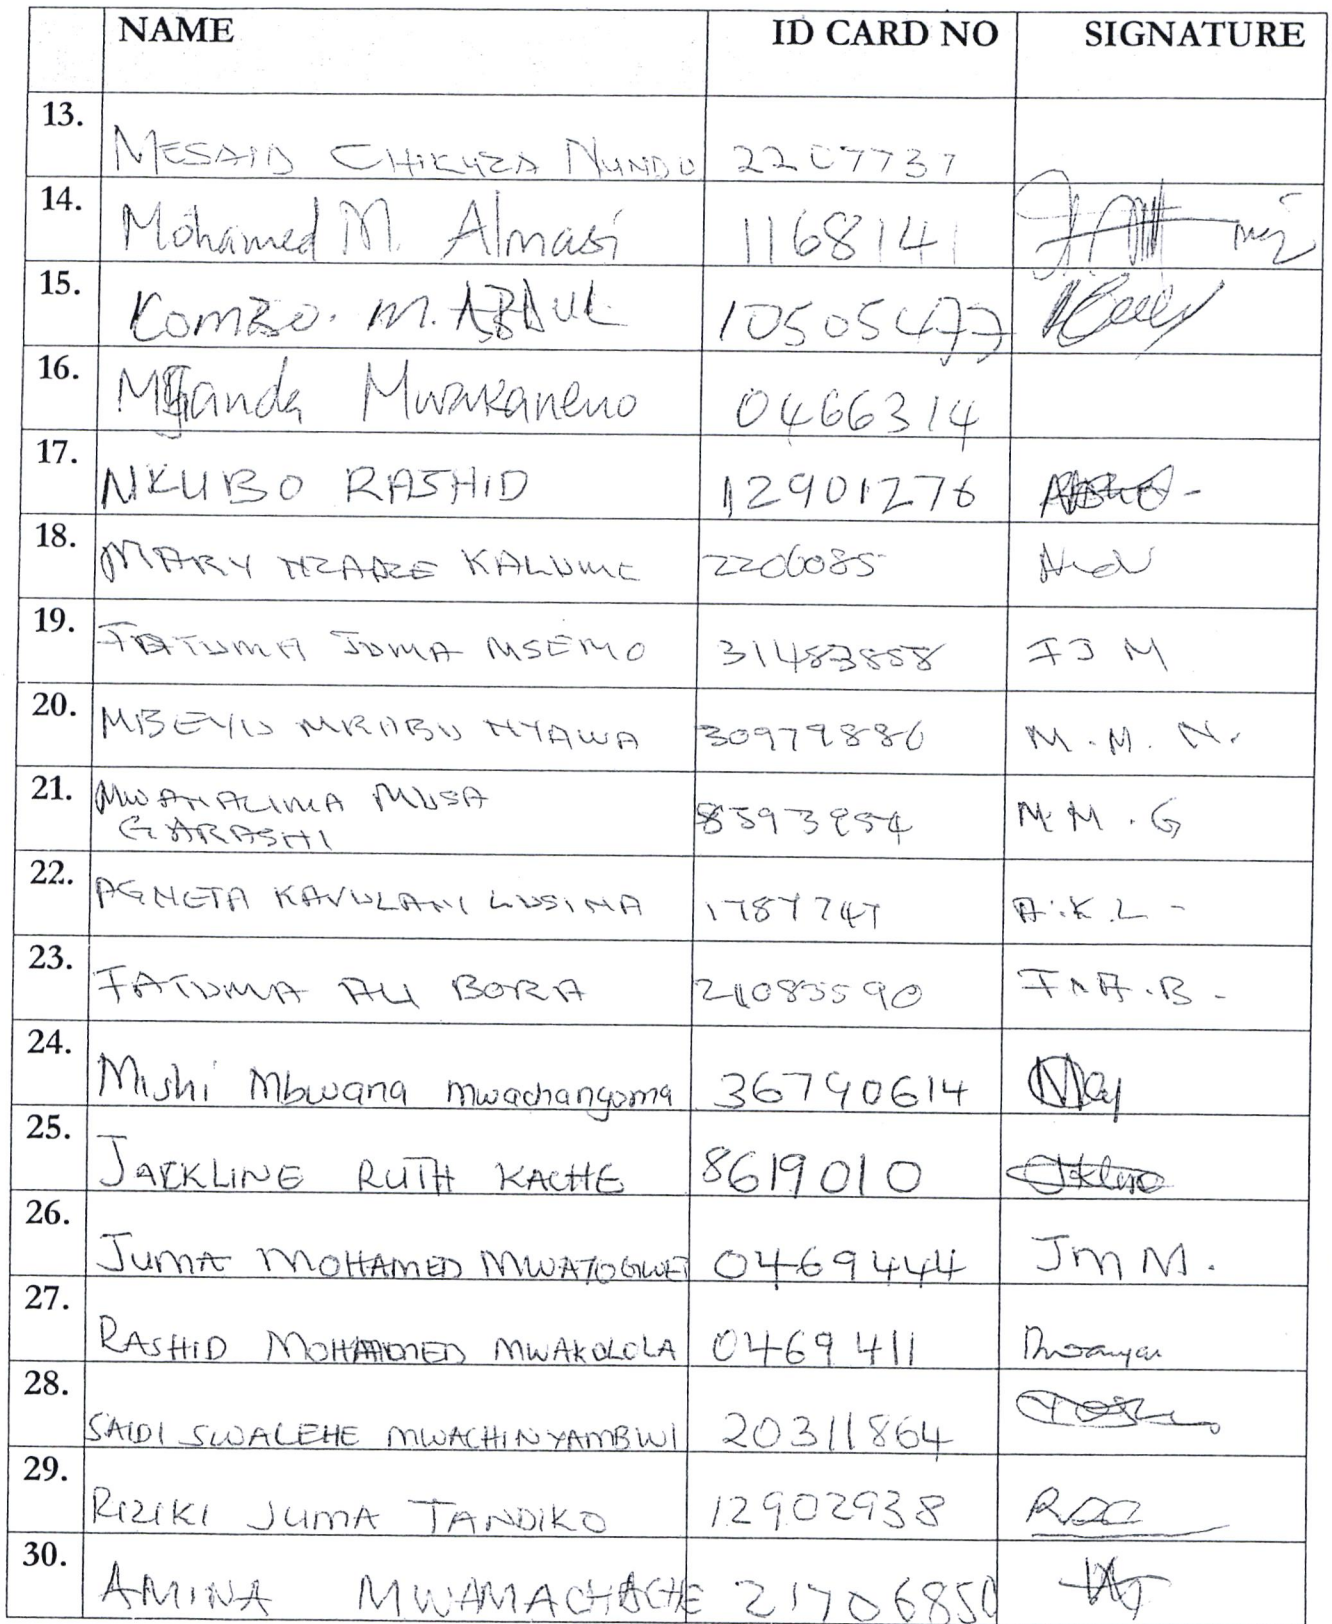 NAME ID CARD NO SIGNATURE
13. MESAID CHIKUZA NUNDU 2207737
14. Mohamed M. Almasi 1168141
15. KOMBO. M. ABDUL 10505477
16. Mwakaneno 0466314
17. NKUBO RASHID 12901276
18. MARY NZADZE KALUME 2206085
19. FATUMA JUMA MSEMO 31483858 FJM
20. MBEYU MRABU NYAWA 30979886 M.M.N.
21. MWANALIMA MUSA
GARASHI 8593954 M.M.G
22. AGNETA KAVULANI LUSINA 1787747 A.K.L-
23. FATUMA ALI BORA 21083590 F.A.B-
24. Mishi Mbwana mwachangoma 36790614
25. JACKLINE RUTH KACHE 8619010
26. JUMA MOHAMED MWATOGWE 0469444 JMM.
27. RASHID MOHAMMED MWAKOLOLA 0469411
28. SAIDI SWALEHE MWACHINYAMBWI 20311864
29. RIZIKI JUMA TANDIKO 12902938
30. AMINA MWAMACHACHE 21706850